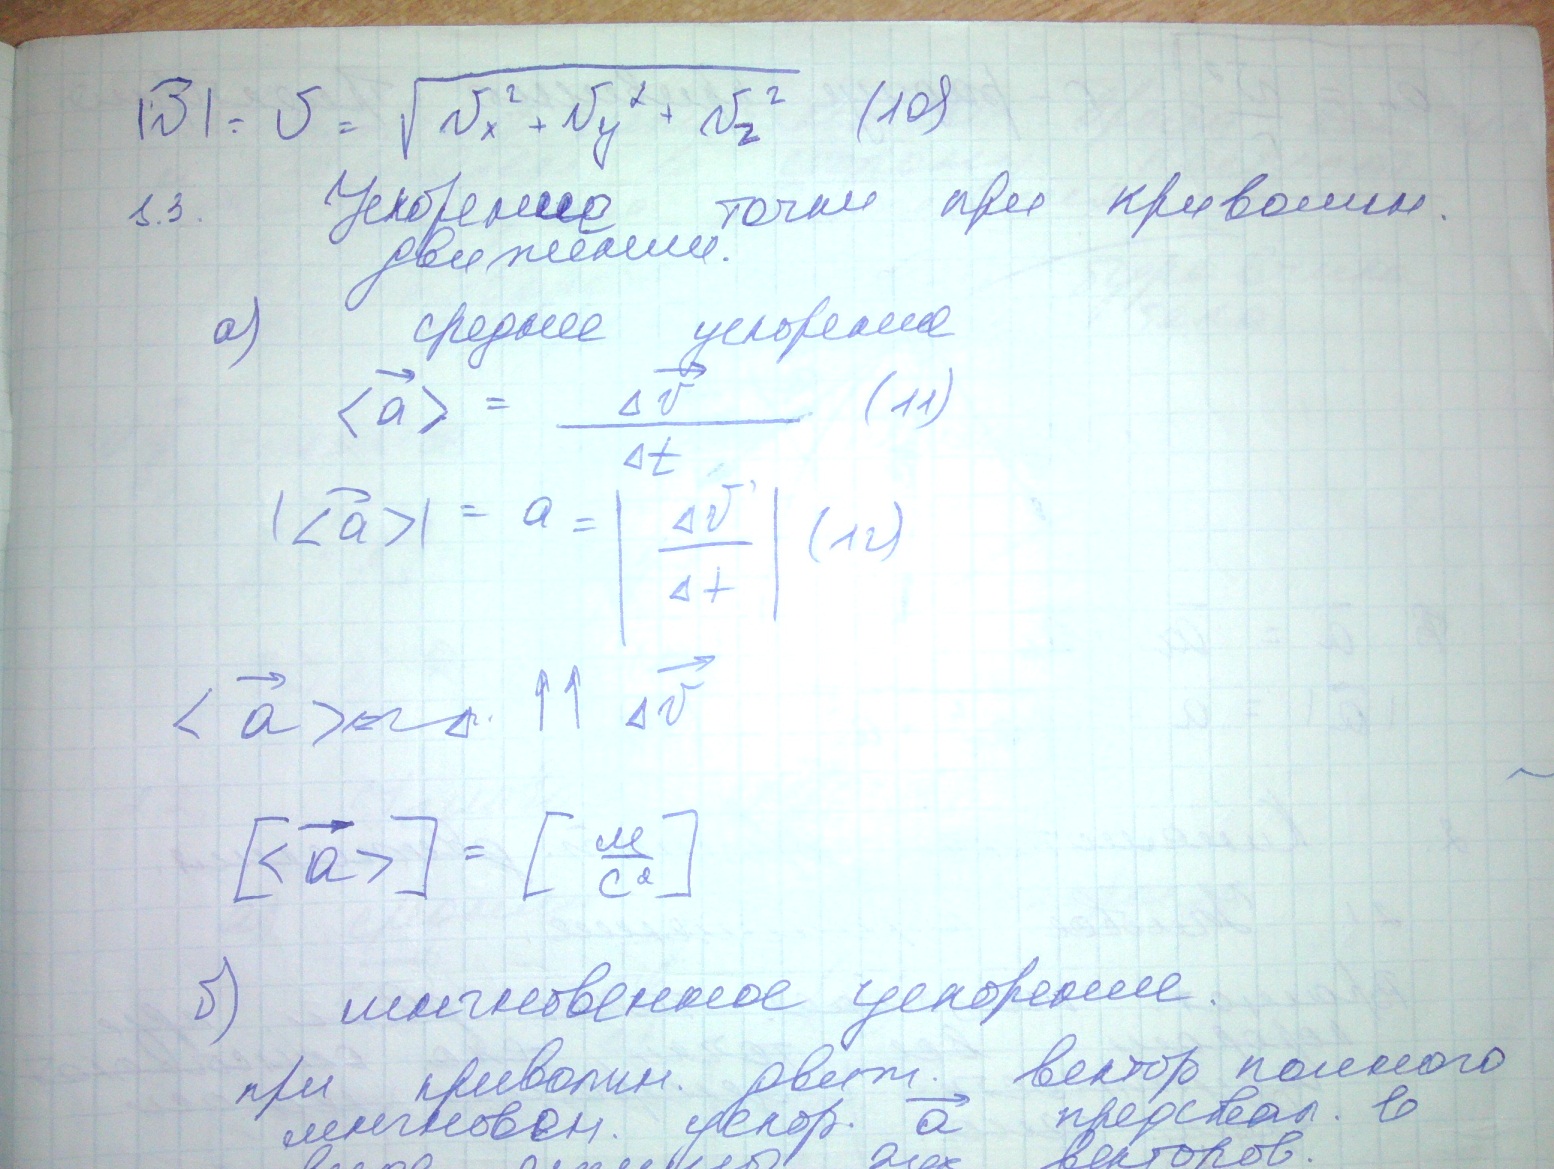 |v⃗| = v = √(vₓ² + v_y² + v_z²) (10)
1.3. Ускорение точки при криволин.
движении.
а) среднее ускорение
<a⃗> = Δv⃗ / Δt (11)
|<a⃗>| = a = |Δv⃗ / Δt| (12)
<a⃗> ↑↑ Δv⃗
[<a⃗>] = [м/с²]
б) мгновенное ускорение.
при криволин. движ. вектор полного
мгновен. ускор. a⃗ представл. в
виде суммы двух векторов.